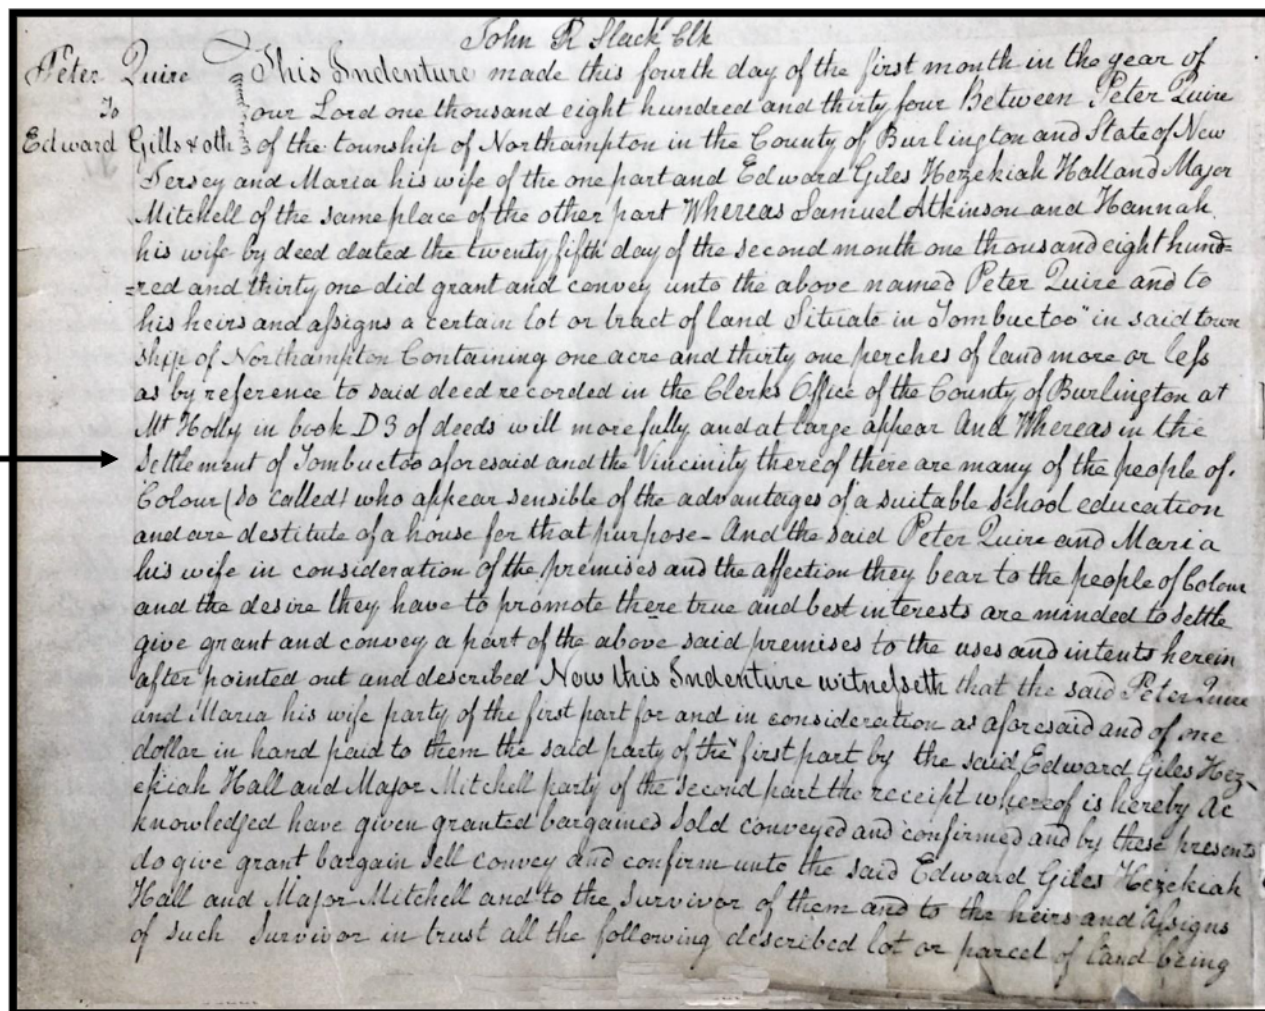 John R Slack Clk
Peter Quire
To
Edward Gills & oth
This Indenture made this fourth day of the first month in the year of
our Lord one thousand eight hundred and thirty four Between Peter Quire
of the township of Northampton in the County of Burlington and State of New
Jersey and Maria his wife of the one part and Edward Giles Hezekiah Hall and Major
Mitchell of the same place of the other part Whereas Samuel Atkinson and Hannah
his wife by deed dated the twenty fifth day of the second month one thousand eight hund=
=red and thirty one did grant and convey unto the above named Peter Quire and to
his heirs and assigns a certain lot or tract of land Situate in Tombuctoo" in said town
ship of Northampton Containing one acre and thirty one perches of land more or less
as by reference to said deed recorded in the Clerks Office of the County of Burlington at
Mt Holly in book D3 of deeds will more fully and at large appear And Whereas in the
Settlement of Tombuctoo aforesaid and the Vincinity thereof there are many of the people of
Colour (so called) who appear sensible of the advantages of a suitable School education
and are destitute of a house for that purpose - And the said Peter Quire and Maria
his wife in consideration of the premises and the affection they bear to the people of Colour
and the desire they have to promote there true and best interests are minded to settle
give grant and convey a part of the above said premises to the uses and intents herein
after pointed out and described Now this Indenture witnesseth that the said Peter Quire
and Maria his wife party of the first part for and in consideration as aforesaid and of one
dollar in hand paid to them the said party of the first part by the said Edward Giles Hez-
ekiah Hall and Major Mitchell party of the second part the receipt whereof is hereby Ac
knowledged have given granted bargained Sold conveyed and confirmed and by these presents
do give grant bargain sell convey and confirm unto the said Edward Giles Hezekiah
Hall and Major Mitchell and to the Survivor of them and to the heirs and Assigns
of such Survivor in trust all the following described lot or parcel of land being